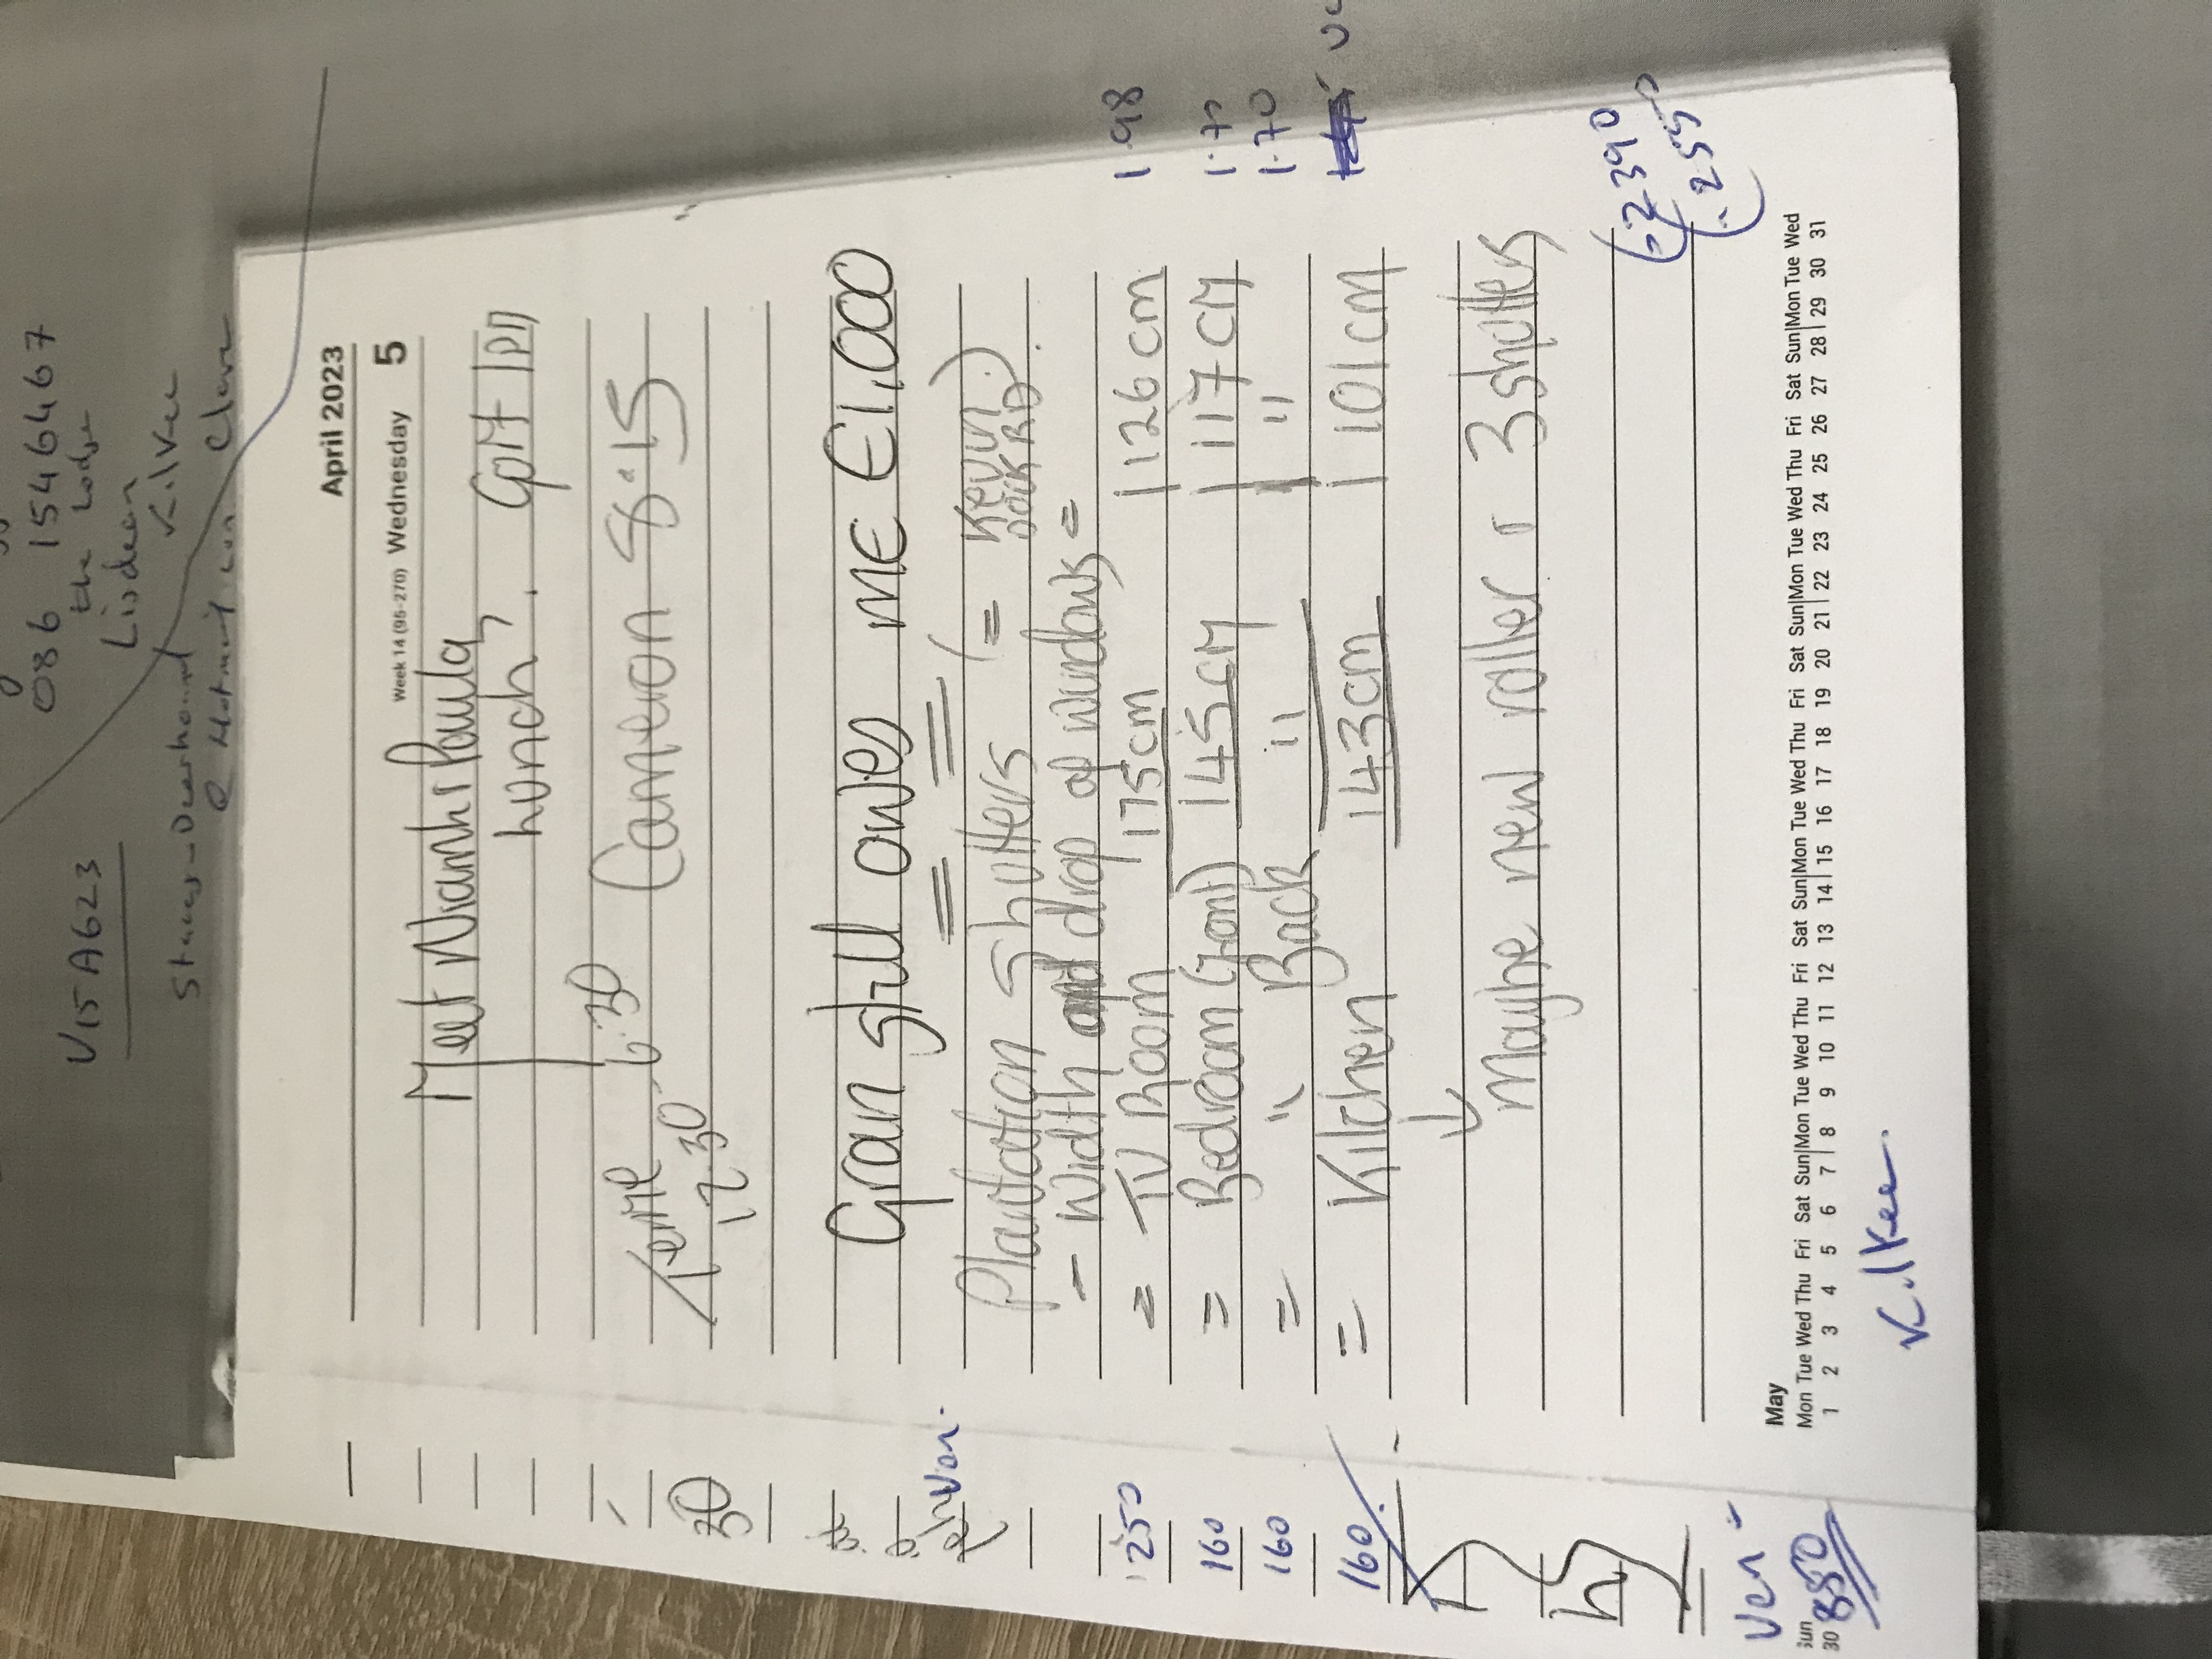 086 1546467
the Lodge
V15 A623
Lisdeen
Kilkee
Clare
April 2023
Week 14 (95-270) Wednesday 5
Meet Niamh & Paula
Lunch. Gort 1pm
6.30 Cameron 8.15
12.30
30
Gran still owes me €1,000
Ven.
Plantation Shutters (= Kevin
Dock RD.)
- Width and drop of windows =
= TV Room 175cm | 126cm 1.98
= Bedroom (Front) 145cm | 117cm
= " Back " | " 1.70
= Kitchen 143cm | 101cm
250
160
160
160
↓
Maybe new roller & 3 shutters
2390
2550
Ven
850
May
Mon Tue Wed Thu Fri Sat Sun|Mon Tue Wed Thu Fri Sat Sun|Mon Tue Wed Thu Fri Sat Sun|Mon Tue Wed Thu Fri Sat Sun|Mon Tue Wed
1 2 3 4 5 6 7 | 8 9 10 11 12 13 14 | 15 16 17 18 19 20 21 | 22 23 24 25 26 27 28 | 29 30 31
Sun
30
Kilkee